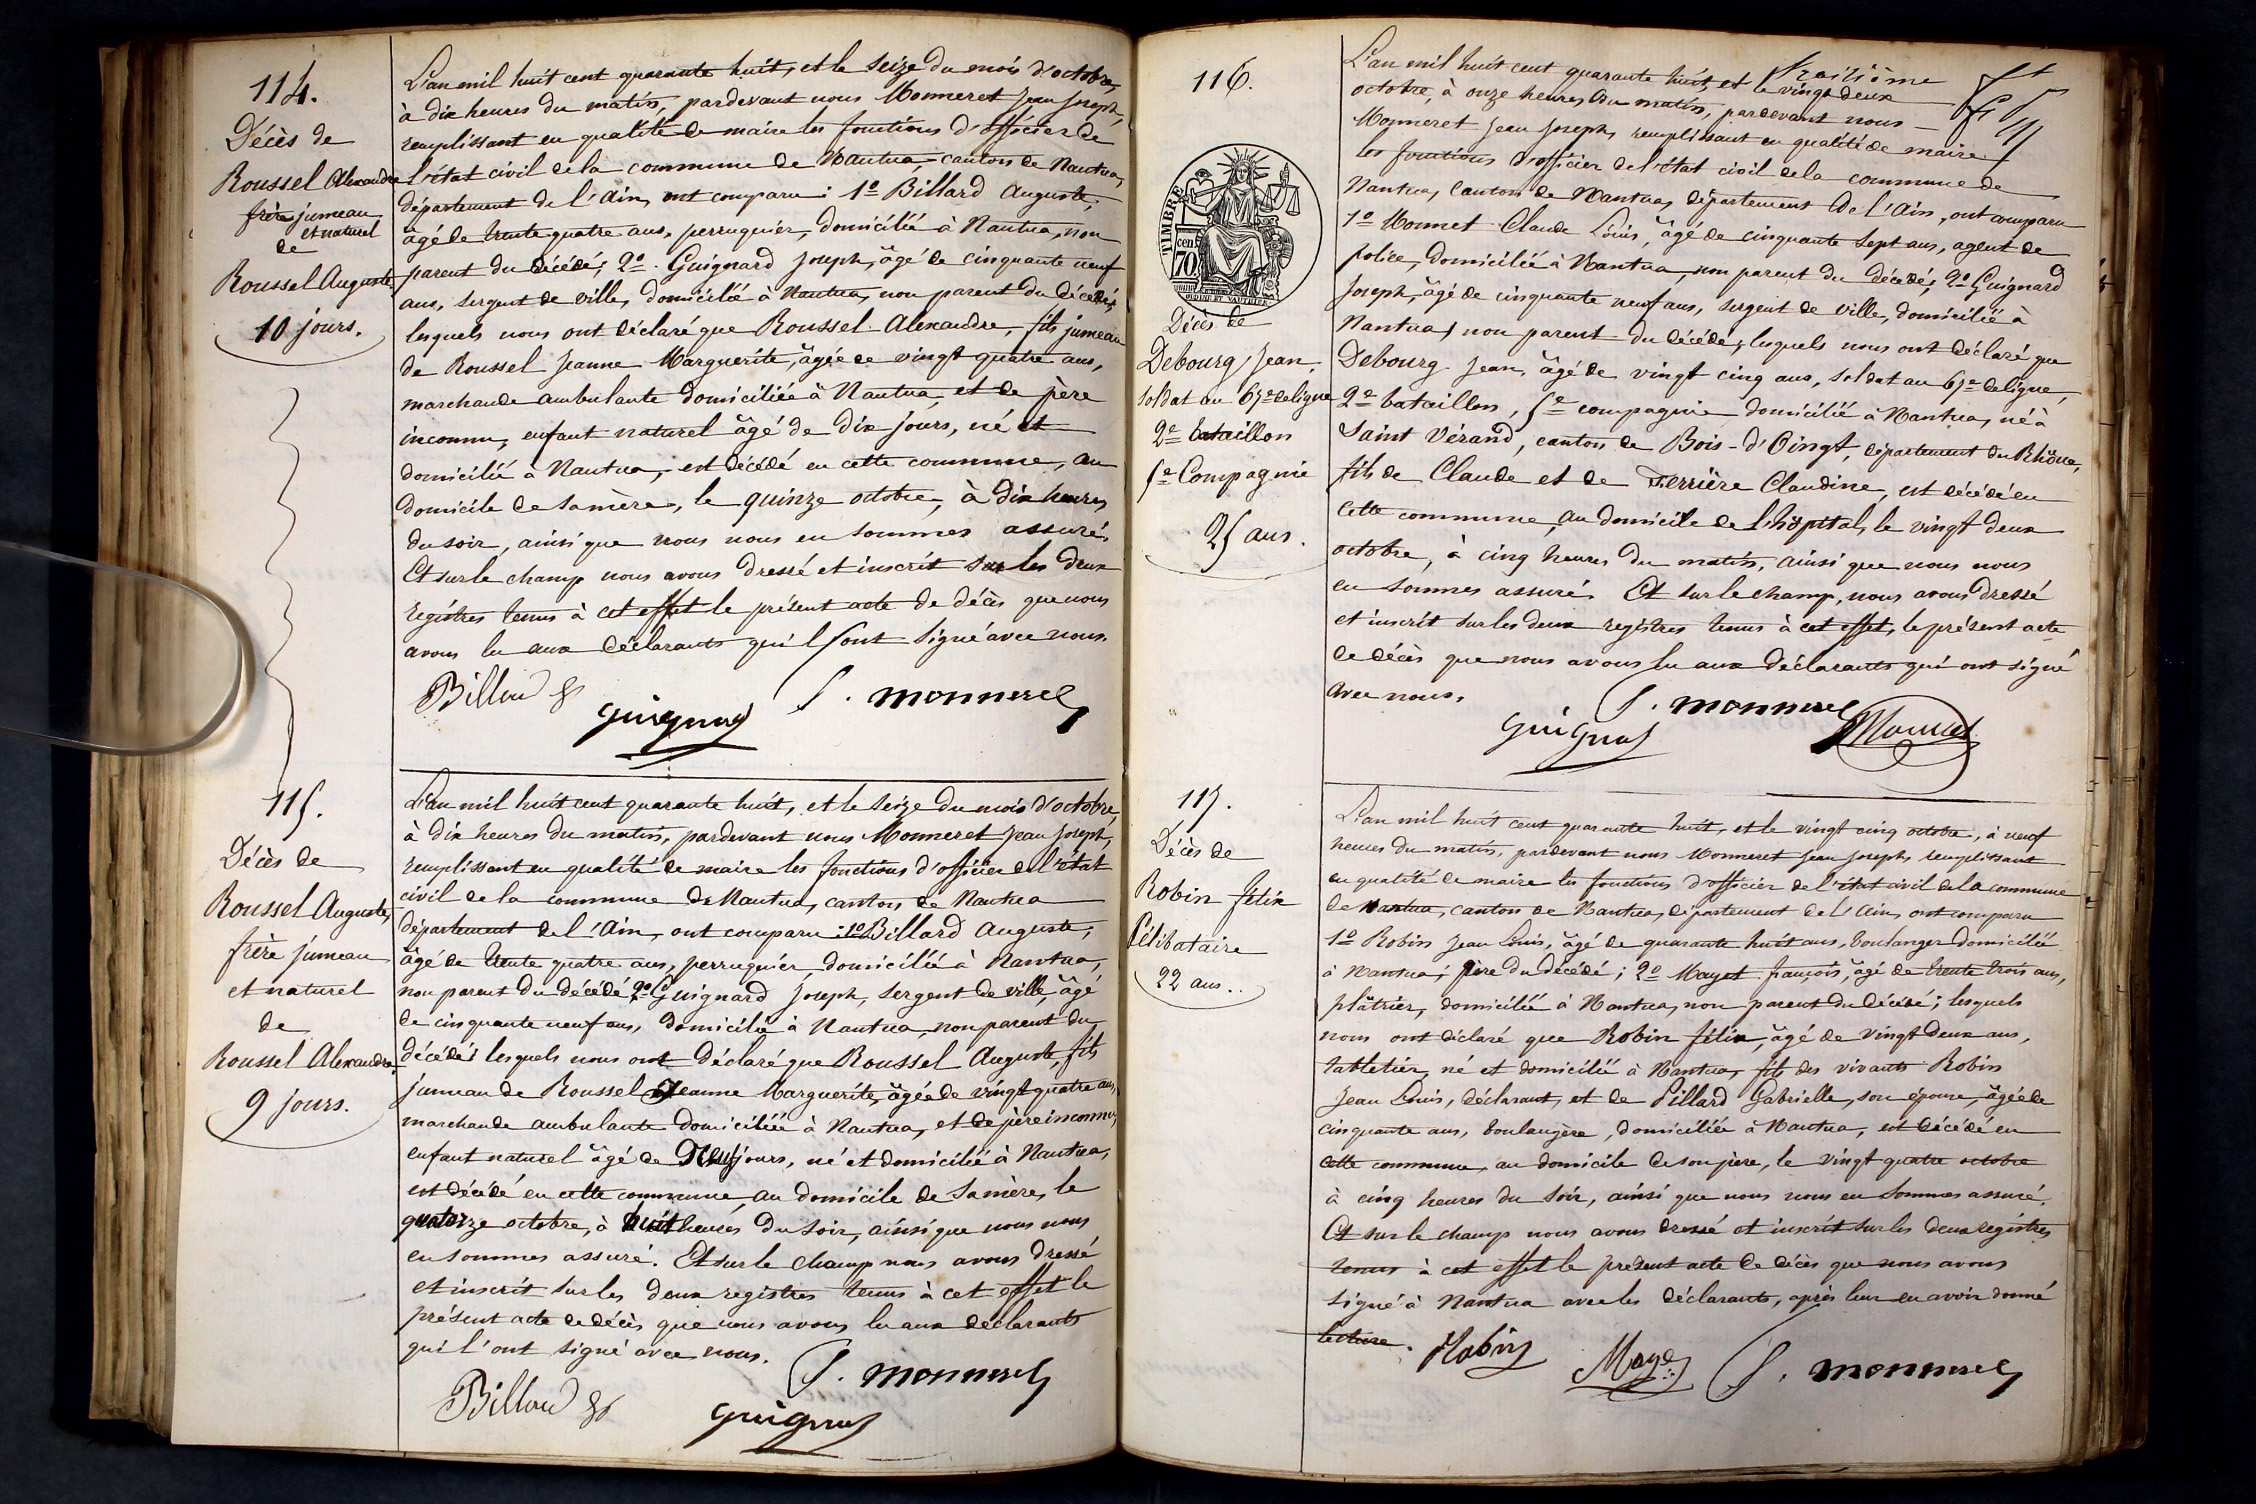 114.
Décès de
Roussel Alexandre
frère jumeau
et naturel
de
Roussel Auguste,
10 jours.
L'an mil huit cent quarante huit, et le seize du mois d'octobre,
à dix heures du matin, pardevant nous Monneret Jean Joseph,
remplissant en qualité de maire les fonctions d'officier de
l'état civil de la commune de Nantua, canton de Nantua,
département de l'Ain, ont comparu : 1º Billard Auguste,
âgé de trente quatre ans, perruquier, domicilié à Nantua, non
parent du décédé; 2º Guignard Joseph, âgé de cinquante neuf
ans, sergent de ville, domicilié à Nantua, non parent du décédé,
lesquels nous ont déclaré que Roussel Alexandre, fils jumeau
de Roussel Jeanne Marguerite, âgée de vingt quatre ans,
marchande ambulante domiciliée à Nantua, et de père
inconnu, enfant naturel âgé de dix jours, né et
domicilié à Nantua, est décédé en cette commune, au
domicile de sa mère, le quinze octobre, à dix heures
du soir, ainsi que nous nous en sommes assuré,
Et sur le champ nous avons dressé et inscrit sur les deux
registres tenus à cet effet le présent acte de décès que nous
avons lu aux déclarants qui l'ont signé avec nous.
Billard
Guignard
J. Monneret
115.
Décès de
Roussel Auguste,
frère jumeau
et naturel
de
Roussel Alexandre
9 jours.
L'an mil huit cent quarante huit, et le seize du mois d'octobre,
à dix heures du matin, pardevant nous Monneret Jean Joseph,
remplissant en qualité de maire les fonctions d'officier de l'état
civil de la commune de Nantua, canton de Nantua
département de l'Ain, ont comparu : 1º Billard Auguste,
âgé de trente quatre ans, perruquier, domicilié à Nantua,
non parent du décédé 2º Guignard Joseph, sergent de ville, âgé
de cinquante neuf ans, domicilié à Nantua, non parent du
décédé; lesquels nous ont déclaré que Roussel Auguste, fils
jumeau de Roussel Jeanne Marguerite, âgée de vingt quatre ans,
marchande ambulante domiciliée à Nantua, et de père inconnu,
enfant naturel âgé de neuf jours, né et domicilié à Nantua,
est décédé en cette commune, au domicile de sa mère, le
quatorze octobre, à huit heures du soir, ainsi que nous nous
en sommes assuré. Et sur le champ nous avons dressé
et inscrit sur les deux registres tenus à cet effet le
présent acte de décès que nous avons lu aux déclarants
qui l'ont signé avec nous.
J. Monneret
Billard
Guignard
116.
TIMBRE
cen
70
Décès de
Debourg Jean,
soldat au 67e de ligne
2e bataillon
5e Compagnie
25 ans.
L'an mil huit cent quarante huit, et le vingt deux
octobre, à onze heures du matin, pardevant nous
Monneret Jean Joseph, remplissant en qualité de maire
les fonctions d'officier de l'état civil de la commune de
Nantua, canton de Nantua, département de l'Ain, ont comparu
1º Monnet Claude Louis, âgé de cinquante sept ans, agent de
police, domicilié à Nantua, non parent du décédé; 2º Guignard
Joseph, âgé de cinquante neuf ans, sergent de ville, domicilié à
Nantua, non parent du décédé; lesquels nous ont déclaré que
Debourg Jean, âgé de vingt cinq ans, soldat au 67e de ligne,
2e bataillon, 5e compagnie domicilié à Nantua, né à
Saint Vérand, canton de Bois-d'Oingt, département du Rhône,
fils de Claude et de Ferrière Claudine, est décédé en
cette commune, au domicile de l'hôpital, le vingt deux
octobre, à cinq heures du matin, ainsi que nous nous
en sommes assuré. Et sur le champ, nous avons dressé
et inscrit sur les deux registres tenus à cet effet, le présent acte
de décès que nous avons lu aux déclarants qui ont signé
avec nous.
J. Monneret
Guignard
Monnet
117.
Décès de
Robin félix
Célibataire
22 ans.
L'an mil huit cent quarante huit, et le vingt cinq octobre, à neuf
heures du matin, pardevant nous Monneret Jean Joseph, remplissant
en qualité de maire les fonctions d'officier de l'état civil de la commune
de Nantua, canton de Nantua, département de l'Ain, ont comparu
1º Robin Jean Louis, âgé de quarante huit ans, boulanger domicilié
à Nantua; père du décédé; 2º Mayet françois, âgé de trente trois ans,
plâtrier, domicilié à Nantua, non parent du décédé; lesquels
nous ont déclaré que Robin félix, âgé de vingt deux ans,
tabletier, né et domicilié à Nantua, fils des vivants Robin
Jean Louis, déclarant, et de Pillard Gabrielle, son épouse, âgée de
cinquante ans, boulangère, domiciliée à Nantua, est décédé en
cette commune, au domicile de son père, le vingt quatre octobre
à cinq heures du soir, ainsi que nous nous en sommes assuré.
Et sur le champ nous avons dressé et inscrit sur les deux registres
tenus à cet effet le présent acte de décès que nous avons
signé à Nantua avec les déclarants, après leur en avoir donné
lecture.
Robin
Mayet
J. Monneret